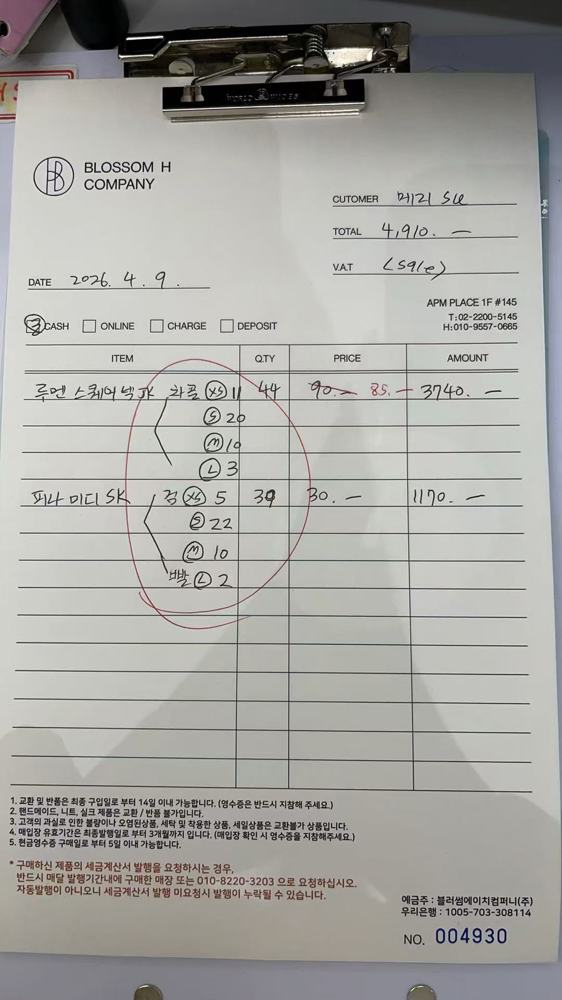 WORLD WIDES
BLOSSOM H
COMPANY
CUTOMER 메리 SU
TOTAL 4,910. —
V.A.T (Sale)
DATE 2026. 4. 9.
APM PLACE 1F #145
T:02-2200-5145
H:010-9557-0665
CASH ONLINE CHARGE DEPOSIT
ITEM Q.TY PRICE AMOUNT
루멘 스퀘어넥 JK 차콜 XS 11 44 90. — 85. — 3740. —
S 20
M 10
L 3
피나 미디 SK 검 XS 5 39 30. — 1170. —
S 22
M 10
빨 L 2
1. 교환 및 반품은 최종 구입일로 부터 14일 이내 가능합니다. (영수증은 반드시 지참해 주세요.)
2. 핸드메이드, 니트, 실크 제품은 교환 / 반품 불가입니다.
3. 고객의 과실로 인한 불량이나 오염된상품, 세탁 및 착용한 상품, 세일상품은 교환불가 상품입니다.
4. 매입장 유효기간은 최종발행일로 부터 3개월까지 입니다. (매입장 확인 시 영수증을 지참해주세요.)
5. 현금영수증 구매일로 부터 5일 이내 가능합니다.
* 구매하신 제품의 세금계산서 발행을 요청하시는 경우,
반드시 매달 발행기간내에 구매한 매장 또는 010-8220-3203 으로 요청하십시오.
자동발행이 아니오니 세금계산서 발행 미요청시 발행이 누락될 수 있습니다.
예금주 : 블러썸에이치컴퍼니(주)
우리은행 : 1005-703-308114
NO. 004930